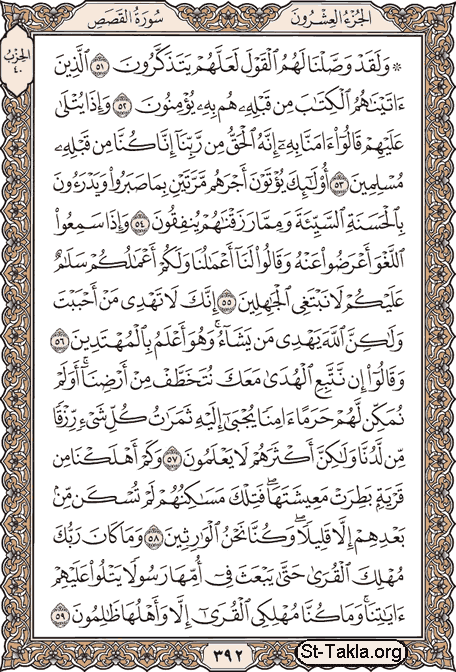 الجُزْءُ العِشْرُونَ
سُورَةُ القَصَصِ
الحِزْبُ
٤٠
۞ وَلَقَدْ وَصَّلْنَا لَهُمُ ٱلْقَوْلَ لَعَلَّهُمْ يَتَذَكَّرُونَ ٥١ ٱلَّذِينَ
ءَاتَيْنَٰهُمُ ٱلْكِتَٰبَ مِن قَبْلِهِۦ هُم بِهِۦ يُؤْمِنُونَ ٥٢ وَإِذَا يُتْلَىٰ
عَلَيْهِمْ قَالُوٓا۟ ءَامَنَّا بِهِۦٓ إِنَّهُ ٱلْحَقُّ مِن رَّبِّنَآ إِنَّا كُنَّا مِن قَبْلِهِۦ
مُسْلِمِينَ ٥٣ أُو۟لَٰٓئِكَ يُؤْتَوْنَ أَجْرَهُم مَّرَّتَيْنِ بِمَا صَبَرُوا۟ وَيَدْرَءُونَ
بِٱلْحَسَنَةِ ٱلسَّيِّئَةَ وَمِمَّا رَزَقْنَٰهُمْ يُنفِقُونَ ٥٤ وَإِذَا سَمِعُوا۟
ٱللَّغْوَ أَعْرَضُوا۟ عَنْهُ وَقَالُوا۟ لَنَآ أَعْمَٰلُنَا وَلَكُمْ أَعْمَٰلُكُمْ سَلَٰمٌ
عَلَيْكُمْ لَا نَبْتَغِى ٱلْجَٰهِلِينَ ٥٥ إِنَّكَ لَا تَهْدِى مَنْ أَحْبَبْتَ
وَلَٰكِنَّ ٱللَّهَ يَهْدِى مَن يَشَآءُ ۚ وَهُوَ أَعْلَمُ بِٱلْمُهْتَدِينَ ٥٦
وَقَالُوٓا۟ إِن نَّتَّبِعِ ٱلْهُدَىٰ مَعَكَ نُتَخَطَّفْ مِنْ أَرْضِنَآ ۚ أَوَلَمْ
نُمَكِّن لَّهُمْ حَرَمًا ءَامِنًا يُجْبَىٰٓ إِلَيْهِ ثَمَرَٰتُ كُلِّ شَىْءٍ رِّزْقًا
مِّن لَّدُنَّا وَلَٰكِنَّ أَكْثَرَهُمْ لَا يَعْلَمُونَ ٥٧ وَكَمْ أَهْلَكْنَا مِن
قَرْيَةٍۭ بَطِرَتْ مَعِيشَتَهَا ۖ فَتِلْكَ مَسَٰكِنُهُمْ لَمْ تُسْكَن مِّنۢ
بَعْدِهِمْ إِلَّا قَلِيلًا ۖ وَكُنَّا نَحْنُ ٱلْوَٰرِثِينَ ٥٨ وَمَا كَانَ رَبُّكَ
مُهْلِكَ ٱلْقُرَىٰ حَتَّىٰ يَبْعَثَ فِىٓ أُمِّهَا رَسُولًا يَتْلُوا۟ عَلَيْهِمْ
ءَايَٰتِنَا ۚ وَمَا كُنَّا مُهْلِكِى ٱلْقُرَىٰٓ إِلَّا وَأَهْلُهَا ظَٰلِمُونَ ٥٩
٣٩٢
St-Takla.org